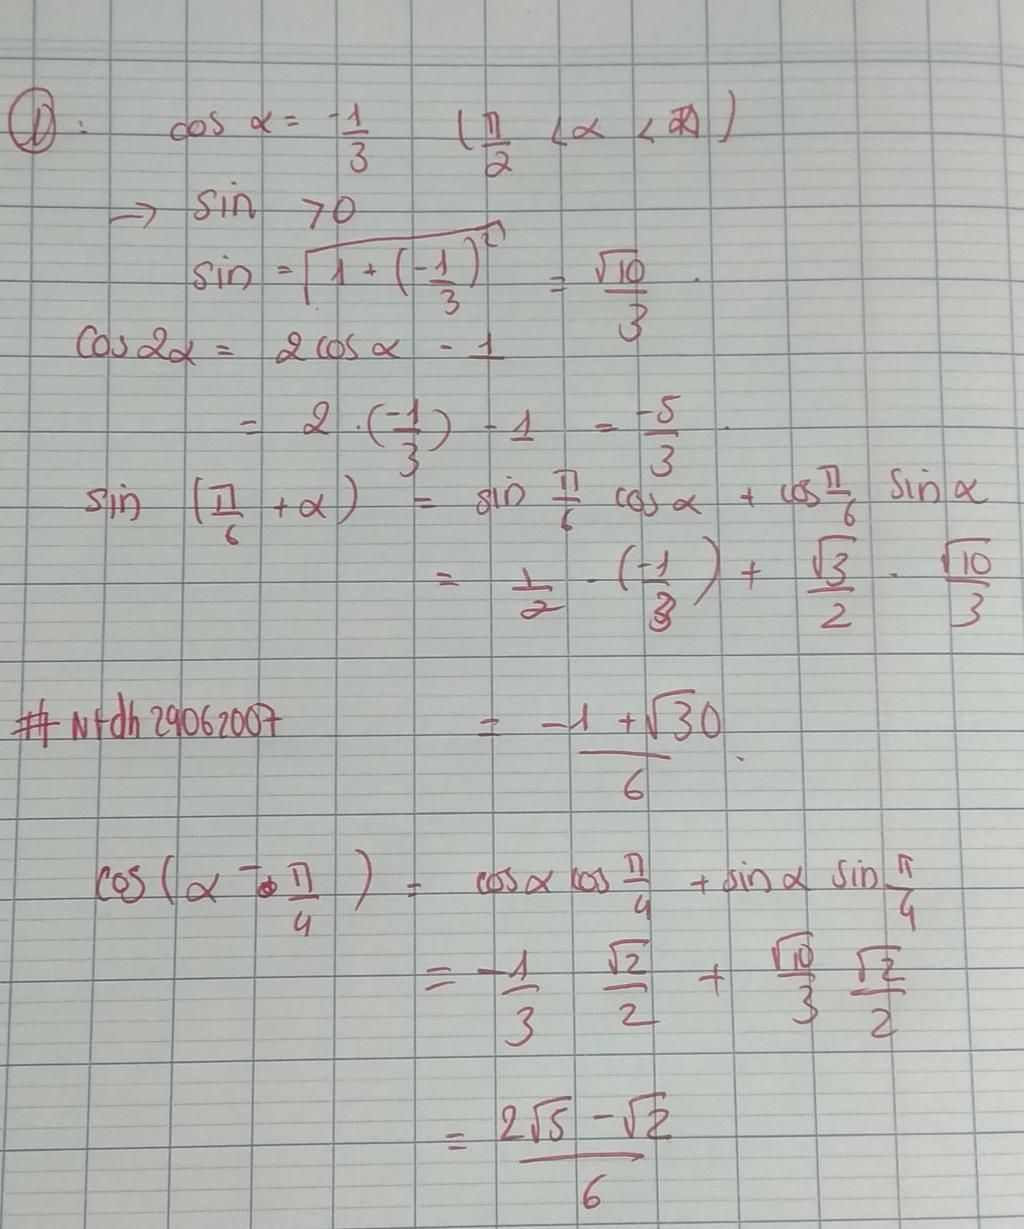 ①: cos α = -1/3 (π/2 < α < π)
→ sin > 0
sin = √(1 + (-1/3)²) = √10/3.
cos 2α = 2 cos α - 1
= 2.(-1/3) - 1 = -5/3.
sin (π/6 + α) = sin π/6 cos α + cos π/6 sin α
= 1/2 . (-1/3) + √3/2 . √10/3
# Ntdh 29062007 = (-1 + √30)/6.
cos(α - π/4) = cos α cos π/4 + sin α sin π/4
= -1/3 √2/2 + √10/3 √2/2
= (2√5 - √2)/6